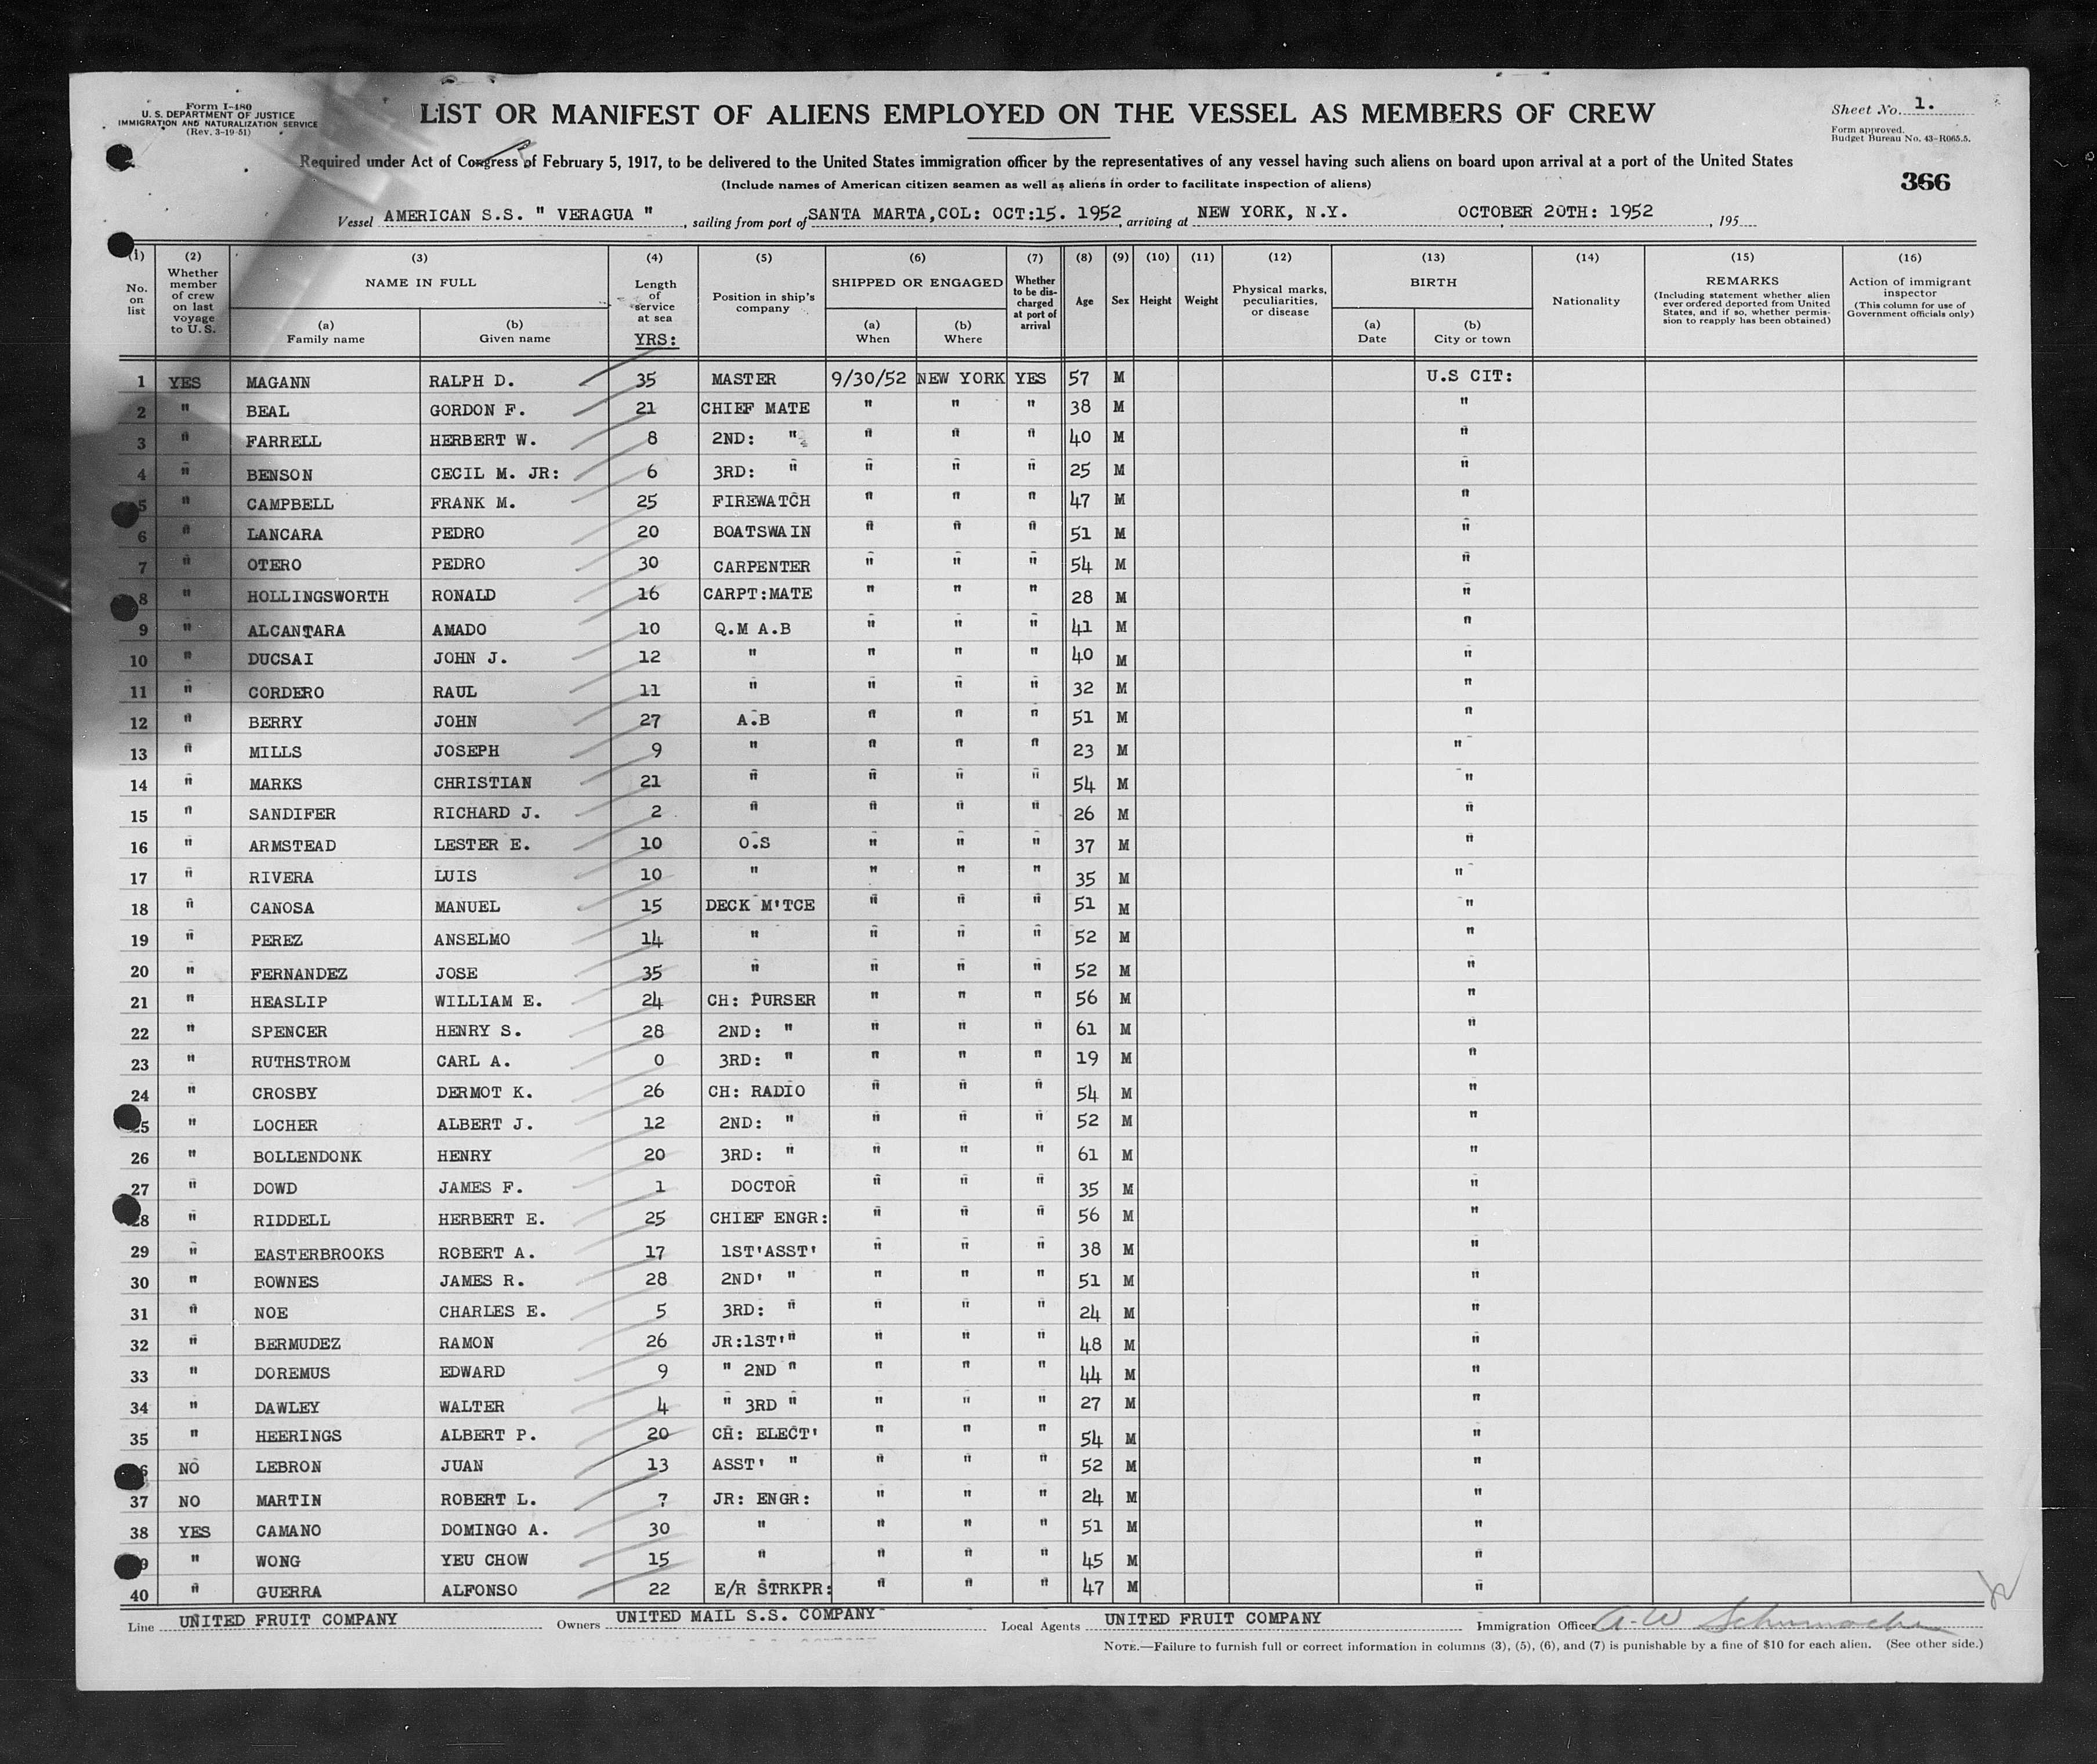 Form I-480
U. S. DEPARTMENT OF JUSTICE
IMMIGRATION AND NATURALIZATION SERVICE
(Rev. 3-19-51)
LIST OR MANIFEST OF ALIENS EMPLOYED ON THE VESSEL AS MEMBERS OF CREW
Sheet No. 1.
Form approved.
Budget Bureau No. 43-R065.5.
Required under Act of Congress of February 5, 1917, to be delivered to the United States immigration officer by the representatives of any vessel having such aliens on board upon arrival at a port of the United States
(Include names of American citizen seamen as well as aliens in order to facilitate inspection of aliens)
366
Vessel AMERICAN S.S. " VERAGUA ", sailing from port of SANTA MARTA,COL: OCT:15. 1952, arriving at NEW YORK, N.Y. OCTOBER 20TH: 1952, 195
(1) No. on list
(2) Whether member of crew on last voyage to U. S.
(3) NAME IN FULL (a) Family name (b) Given name
(4) Length of service at sea YRS:
(5) Position in ship's company
(6) SHIPPED OR ENGAGED (a) When (b) Where
(7) Whether to be discharged at port of arrival
(8) Age
(9) Sex
(10) Height
(11) Weight
(12) Physical marks, peculiarities, or disease
(13) BIRTH (a) Date (b) City or town
(14) Nationality
(15) REMARKS (Including statement whether alien ever ordered deported from United States, and if so, whether permission to reapply has been obtained)
(16) Action of immigrant inspector (This column for use of Government officials only)
1 YES MAGANN RALPH D. 35 MASTER 9/30/52 NEW YORK YES 57 M U.S CIT:
2 " BEAL GORDON F. 21 CHIEF MATE " " " 38 M "
3 " FARRELL HERBERT W. 8 2ND: " " " " 40 M "
4 " BENSON CECIL M. JR: 6 3RD: " " " " 25 M "
5 " CAMPBELL FRANK M. 25 FIREWATCH " " " 47 M "
6 " LANCARA PEDRO 20 BOATSWAIN " " " 51 M "
7 " OTERO PEDRO 30 CARPENTER " " " 54 M "
8 " HOLLINGSWORTH RONALD 16 CARPT:MATE " " " 28 M "
9 " ALCANTARA AMADO 10 Q.M A.B " " " 41 M "
10 " DUCSAI JOHN J. 12 " " " " 40 M "
11 " CORDERO RAUL 11 " " " " 32 M "
12 " BERRY JOHN 27 A.B " " " 51 M "
13 " MILLS JOSEPH 9 " " " " 23 M "
14 " MARKS CHRISTIAN 21 " " " " 54 M "
15 " SANDIFER RICHARD J. 2 " " " " 26 M "
16 " ARMSTEAD LESTER E. 10 O.S " " " 37 M "
17 " RIVERA LUIS 10 " " " " 35 M "
18 " CANOSA MANUEL 15 DECK M'TCE " " " 51 M "
19 " PEREZ ANSELMO 14 " " " " 52 M "
20 " FERNANDEZ JOSE 35 " " " " 52 M "
21 " HEASLIP WILLIAM E. 24 CH: PURSER " " " 56 M "
22 " SPENCER HENRY S. 28 2ND: " " " " 61 M "
23 " RUTHSTROM CARL A. 0 3RD: " " " " 19 M "
24 " CROSBY DERMOT K. 26 CH: RADIO " " " 54 M "
25 " LOCHER ALBERT J. 12 2ND: " " " " 52 M "
26 " BOLLENDONK HENRY 20 3RD: " " " " 61 M "
27 " DOWD JAMES F. 1 DOCTOR " " " 35 M "
28 " RIDDELL HERBERT E. 25 CHIEF ENGR: " " " 56 M "
29 " EASTERBROOKS ROBERT A. 17 1ST'ASST' " " " 38 M "
30 " BOWNES JAMES R. 28 2ND' " " " " 51 M "
31 " NOE CHARLES E. 5 3RD: " " " " 24 M "
32 " BERMUDEZ RAMON 26 JR:1ST'" " " " 48 M "
33 " DOREMUS EDWARD 9 " 2ND " " " " 44 M "
34 " DAWLEY WALTER 4 " 3RD " " " " 27 M "
35 " HEERINGS ALBERT P. 20 CH: ELECT' " " " 54 M "
36 NO LEBRON JUAN 13 ASST' " " " " 52 M "
37 NO MARTIN ROBERT L. ? JR: ENGR: " " " 24 M "
38 YES CAMANO DOMINGO A. 30 " " " " 51 M "
39 " WONG YEU CHOW 15 " " " " 45 M "
40 " GUERRA ALFONSO 22 E/R STRKPR: " " " 47 M "
Line UNITED FRUIT COMPANY Owners UNITED MAIL S.S. COMPANY Local Agents UNITED FRUIT COMPANY Immigration Officer A-W Schumacher
NOTE.—Failure to furnish full or correct information in columns (3), (5), (6), and (7) is punishable by a fine of $10 for each alien. (See other side.)